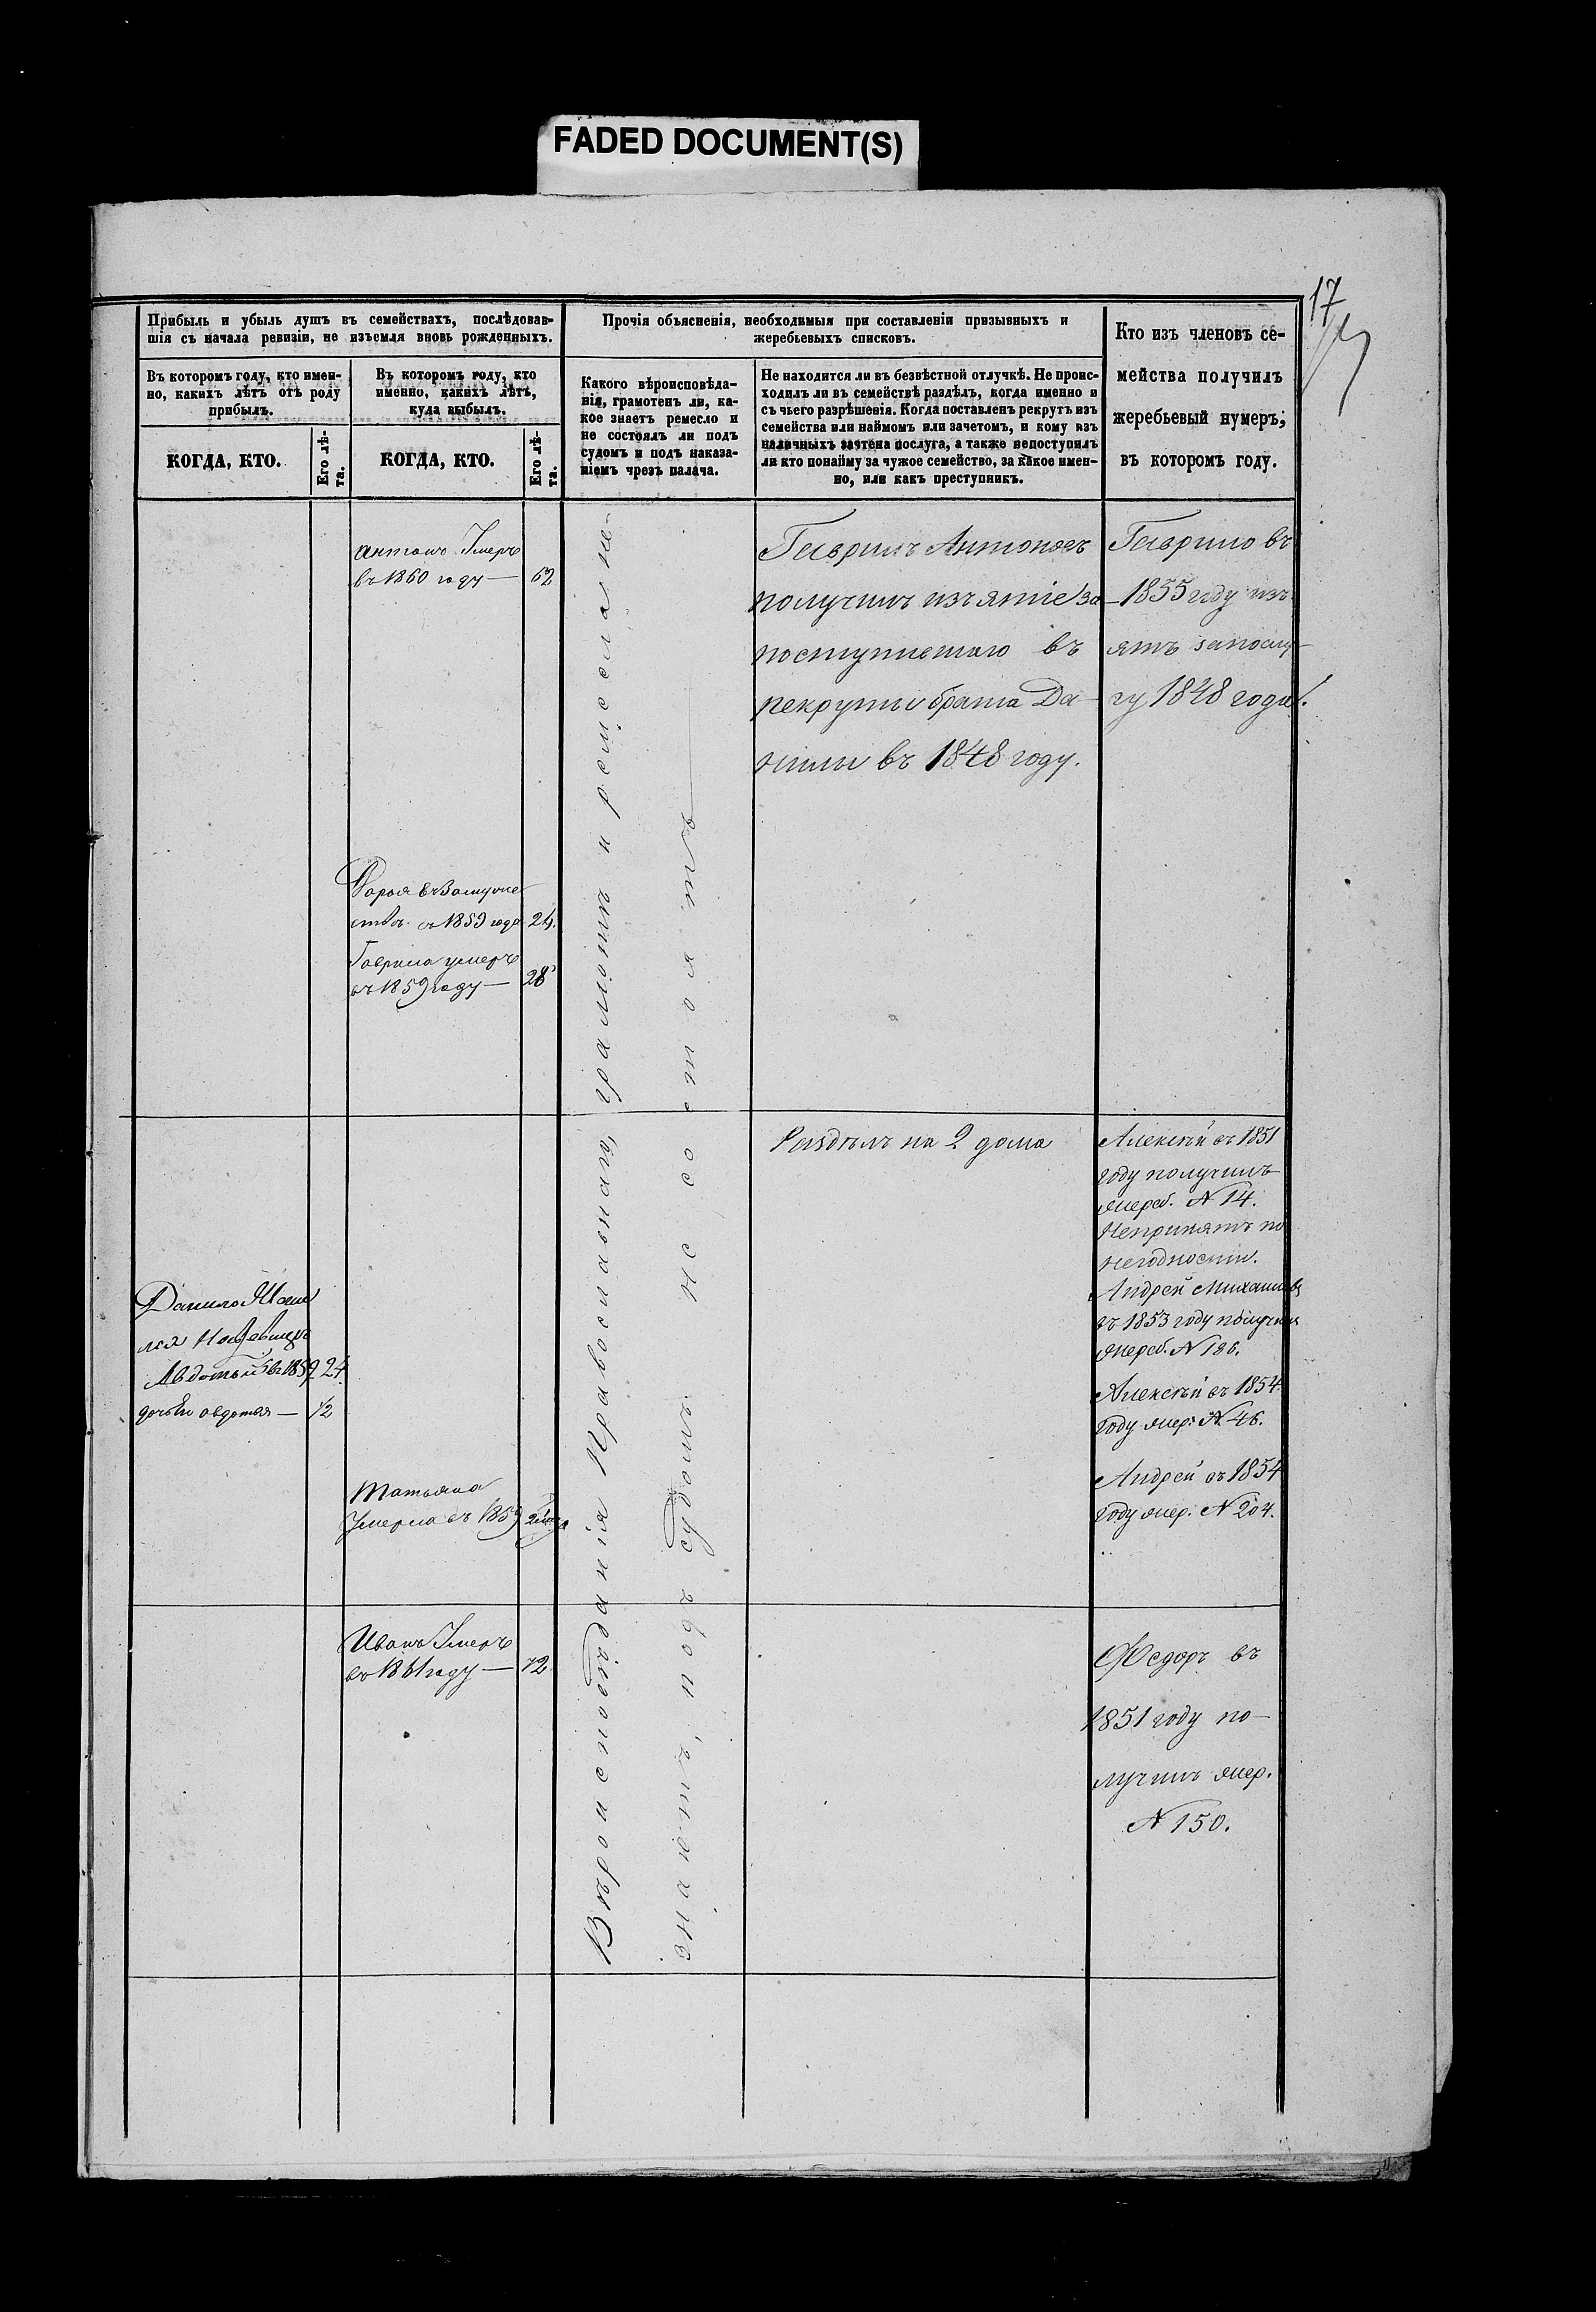 FADED DOCUMENT(S)
17
Прибыль и убыль душъ въ семействахъ, послѣдовав-
шія съ начала ревизіи, не изъемля вновь рожденныхъ.
Въ которомъ году, кто имен-
но, какихъ лѣтъ отъ роду
прибылъ.
КОГДА, КТО.
Его лѣ-
та.
Въ которомъ году, кто
именно, какихъ лѣтъ,
куда выбылъ.
КОГДА, КТО.
Его лѣ-
та.
Прочія объясненія, необходимыя при составленіи призывныхъ и
жеребьевыхъ списковъ.
Какого вѣроисповѣда-
нія, грамотенъ ли, ка-
кое знаетъ ремесло и
не состоялъ ли подъ
судомъ и подъ наказа-
ніемъ чрезъ палача.
Не находится ли въ безвѣстной отлучкѣ. Не проис-
ходилъ ли въ семействѣ раздѣлъ, когда именно и
съ чьего разрѣшенія. Когда поставленъ рекрутъ изъ
семейства или наймомъ или зачетомъ, и кому изъ
наличныхъ зачтена послуга, а также непоступилъ
ли кто понайму за чужое семейство, за какое имен-
но, или какъ преступникъ.
Кто изъ членовъ се-
мейства получилъ
жеребьевый нумеръ;
въ которомъ году.
Антонъ Умеръ
въ 1860 году — 62
Дарья въ Замуже
ствѣ въ 1859 года 24.
Гаврила умеръ
въ 1859 году — 28
Вѣроисповѣданія Православнаго, грамотѣ и ремесла не-
знаютъ, подъ судомъ не состоятъ
Гаврилъ Антоновъ
получилъ изъятіе за
поступившаго въ
рекруты брата Да-
нилы въ 1848 году.
Гаврило въ
1855 году изъ
ятъ запослу-
гу 1848 года.
Данило
Авдотьи въ 1859 24
дочь Ея авдотья — 1/2
Татьяна
Умерла въ 1859
Раздѣлъ на 2 дома
Алексѣй въ 1851
году получилъ
жереб. N 14.
Непринятъ по
негодности.
Андрей Михайловъ
въ 1853 году получилъ
жереб. N 186.
Алексѣй въ 1854
году жер. N 46.
Андрей въ 1854
году жер. N 204.
Иванъ Умеръ
въ 1861 году — 72
Федоръ въ
1851 году по-
лучилъ жер.
N 150.